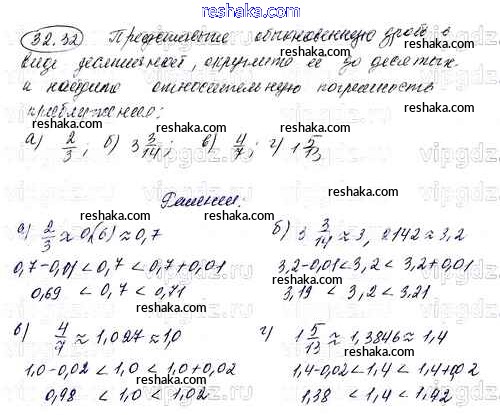 reshaka.com
32.32 Представьте обыкновенную дробь в
виде десятичной, округлите её до десятых
и найдите относительную погрешность
приближения:
а) 2/3; б) 3 3/14; в) 4/7; г) 1 5/13
Решение.
а) 2/3 ≈ 0,(6) ≈ 0,7 б) 3 3/14 ≈ 3,2142 ≈ 3,2
0,7-0,01 < 0,7 < 0,7+0,01 3,2-0,01 < 3,2 < 3,2+0,01
0,69 < 0,7 < 0,71 3,19 < 3,2 < 3,21
в) 4/7 ≈ 1,027 ≈ 1,0 г) 1 5/13 ≈ 1,3846 ≈ 1,4
1,0-0,02 < 1,0 < 1,0+0,02 1,4-0,02 < 1,4 < 1,4+0,02
0,98 < 1,0 < 1,02 1,38 < 1,4 < 1,42